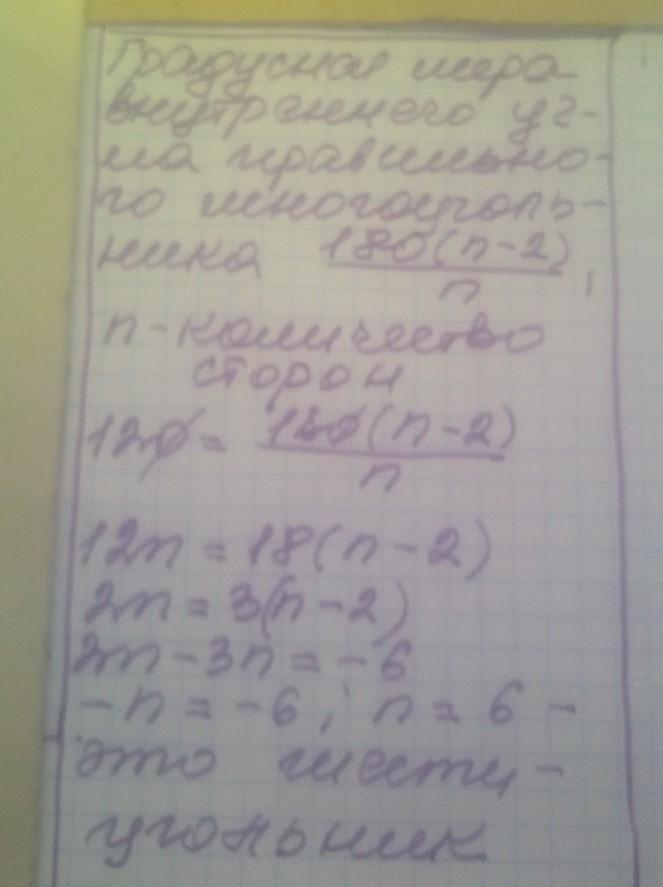 Градусная мера
внутреннего уг-
ла правильно-
го многоуголь-
ника 180(n-2)/n,
n-количество
сторон
120 = 180(n-2)/n
12n = 18(n-2)
2n = 3(n-2)
2n-3n = -6
-n = -6; n = 6 -
это шести-
угольник